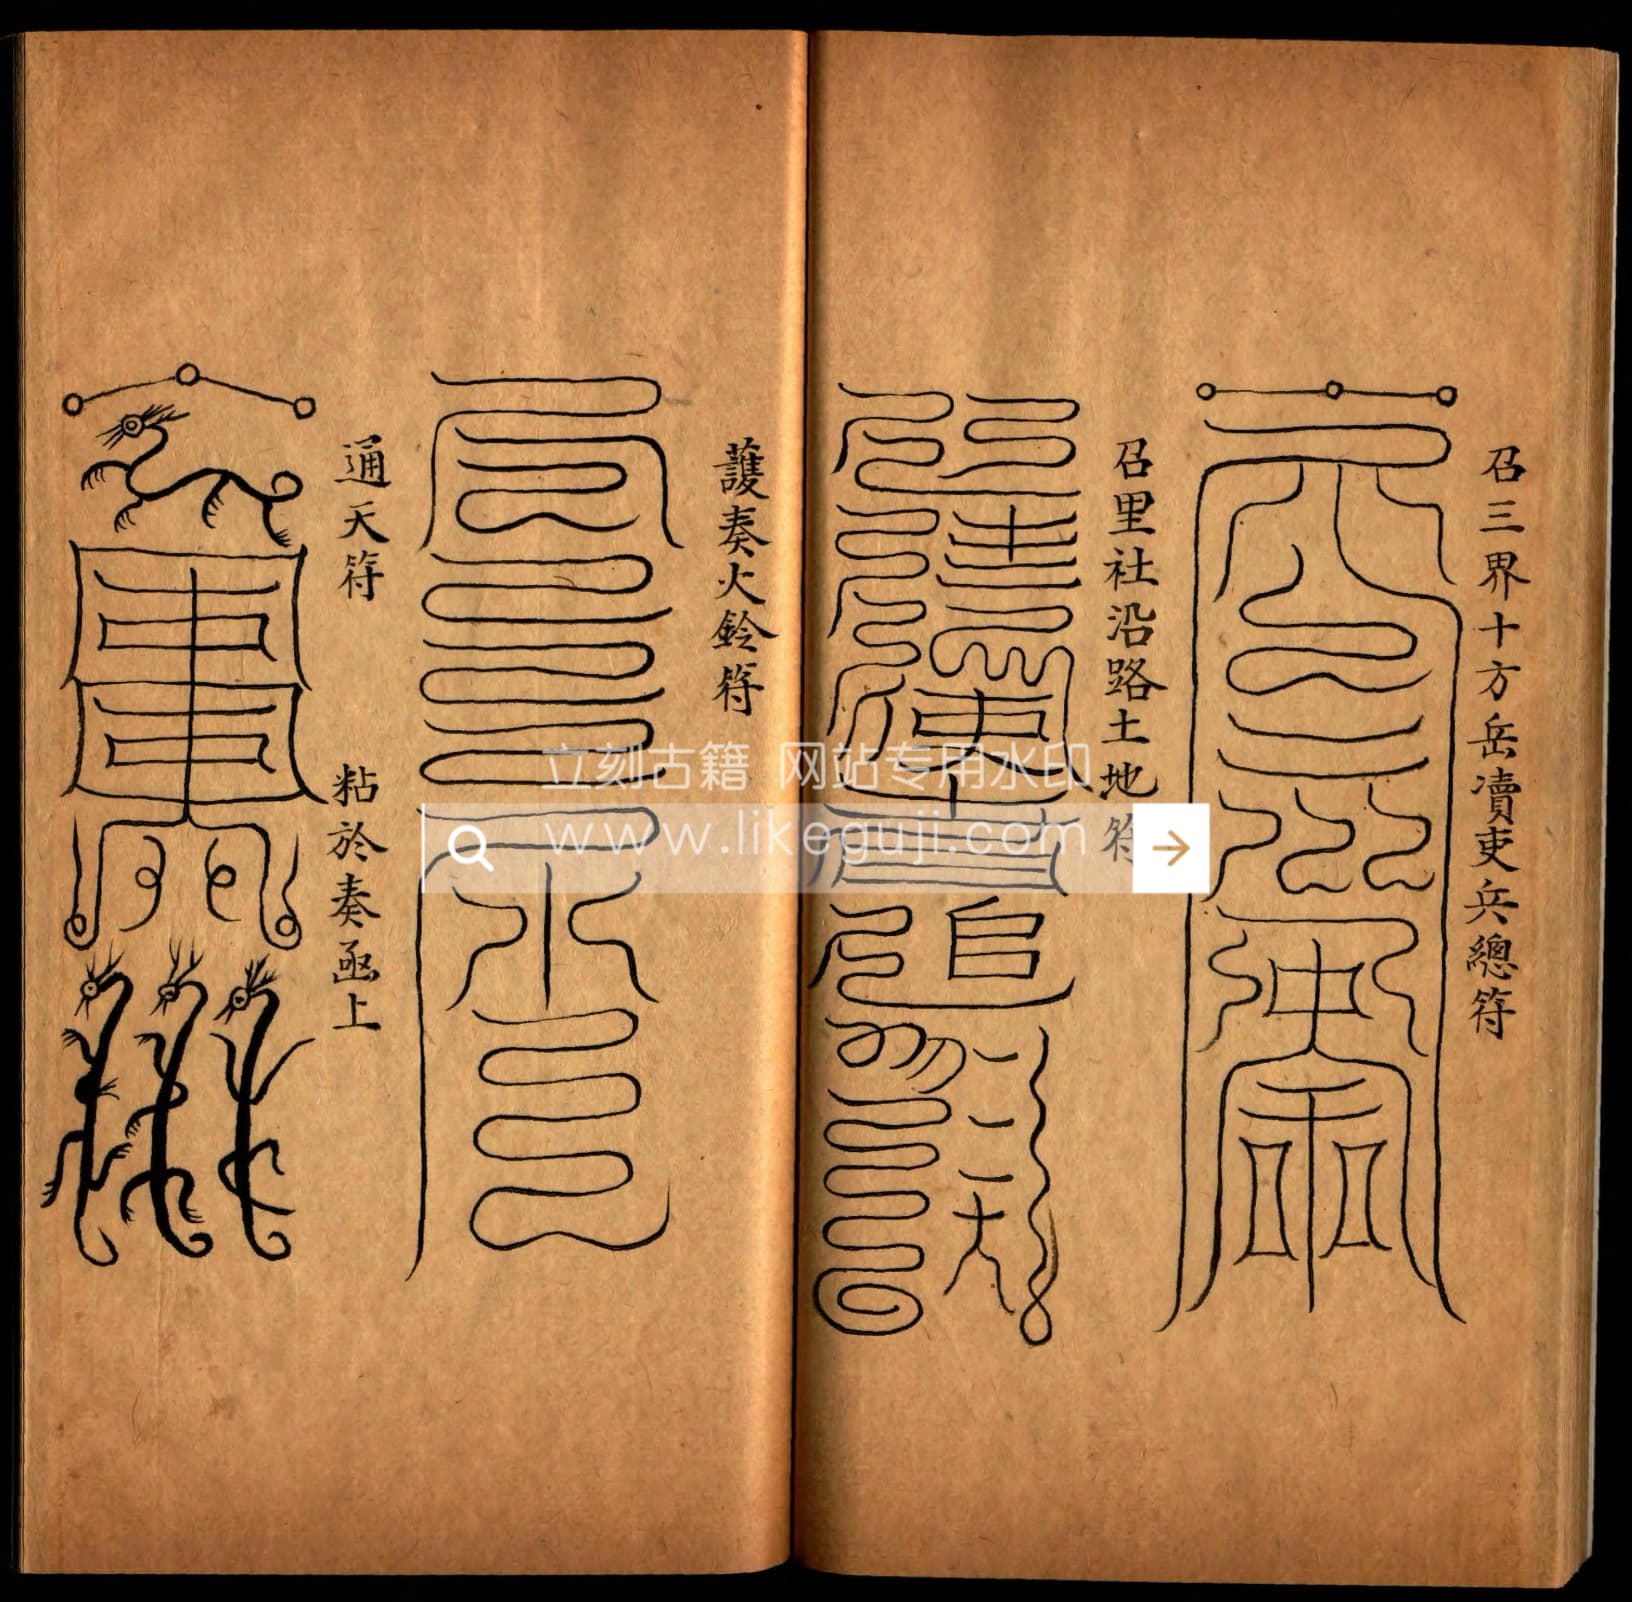 召三界十方岳瀆吏兵總符
召里社沿路土地符
護奏火鈴符
通天符　粘於奏函上
立刻古籍 网站专用水印
www.likeguji.com